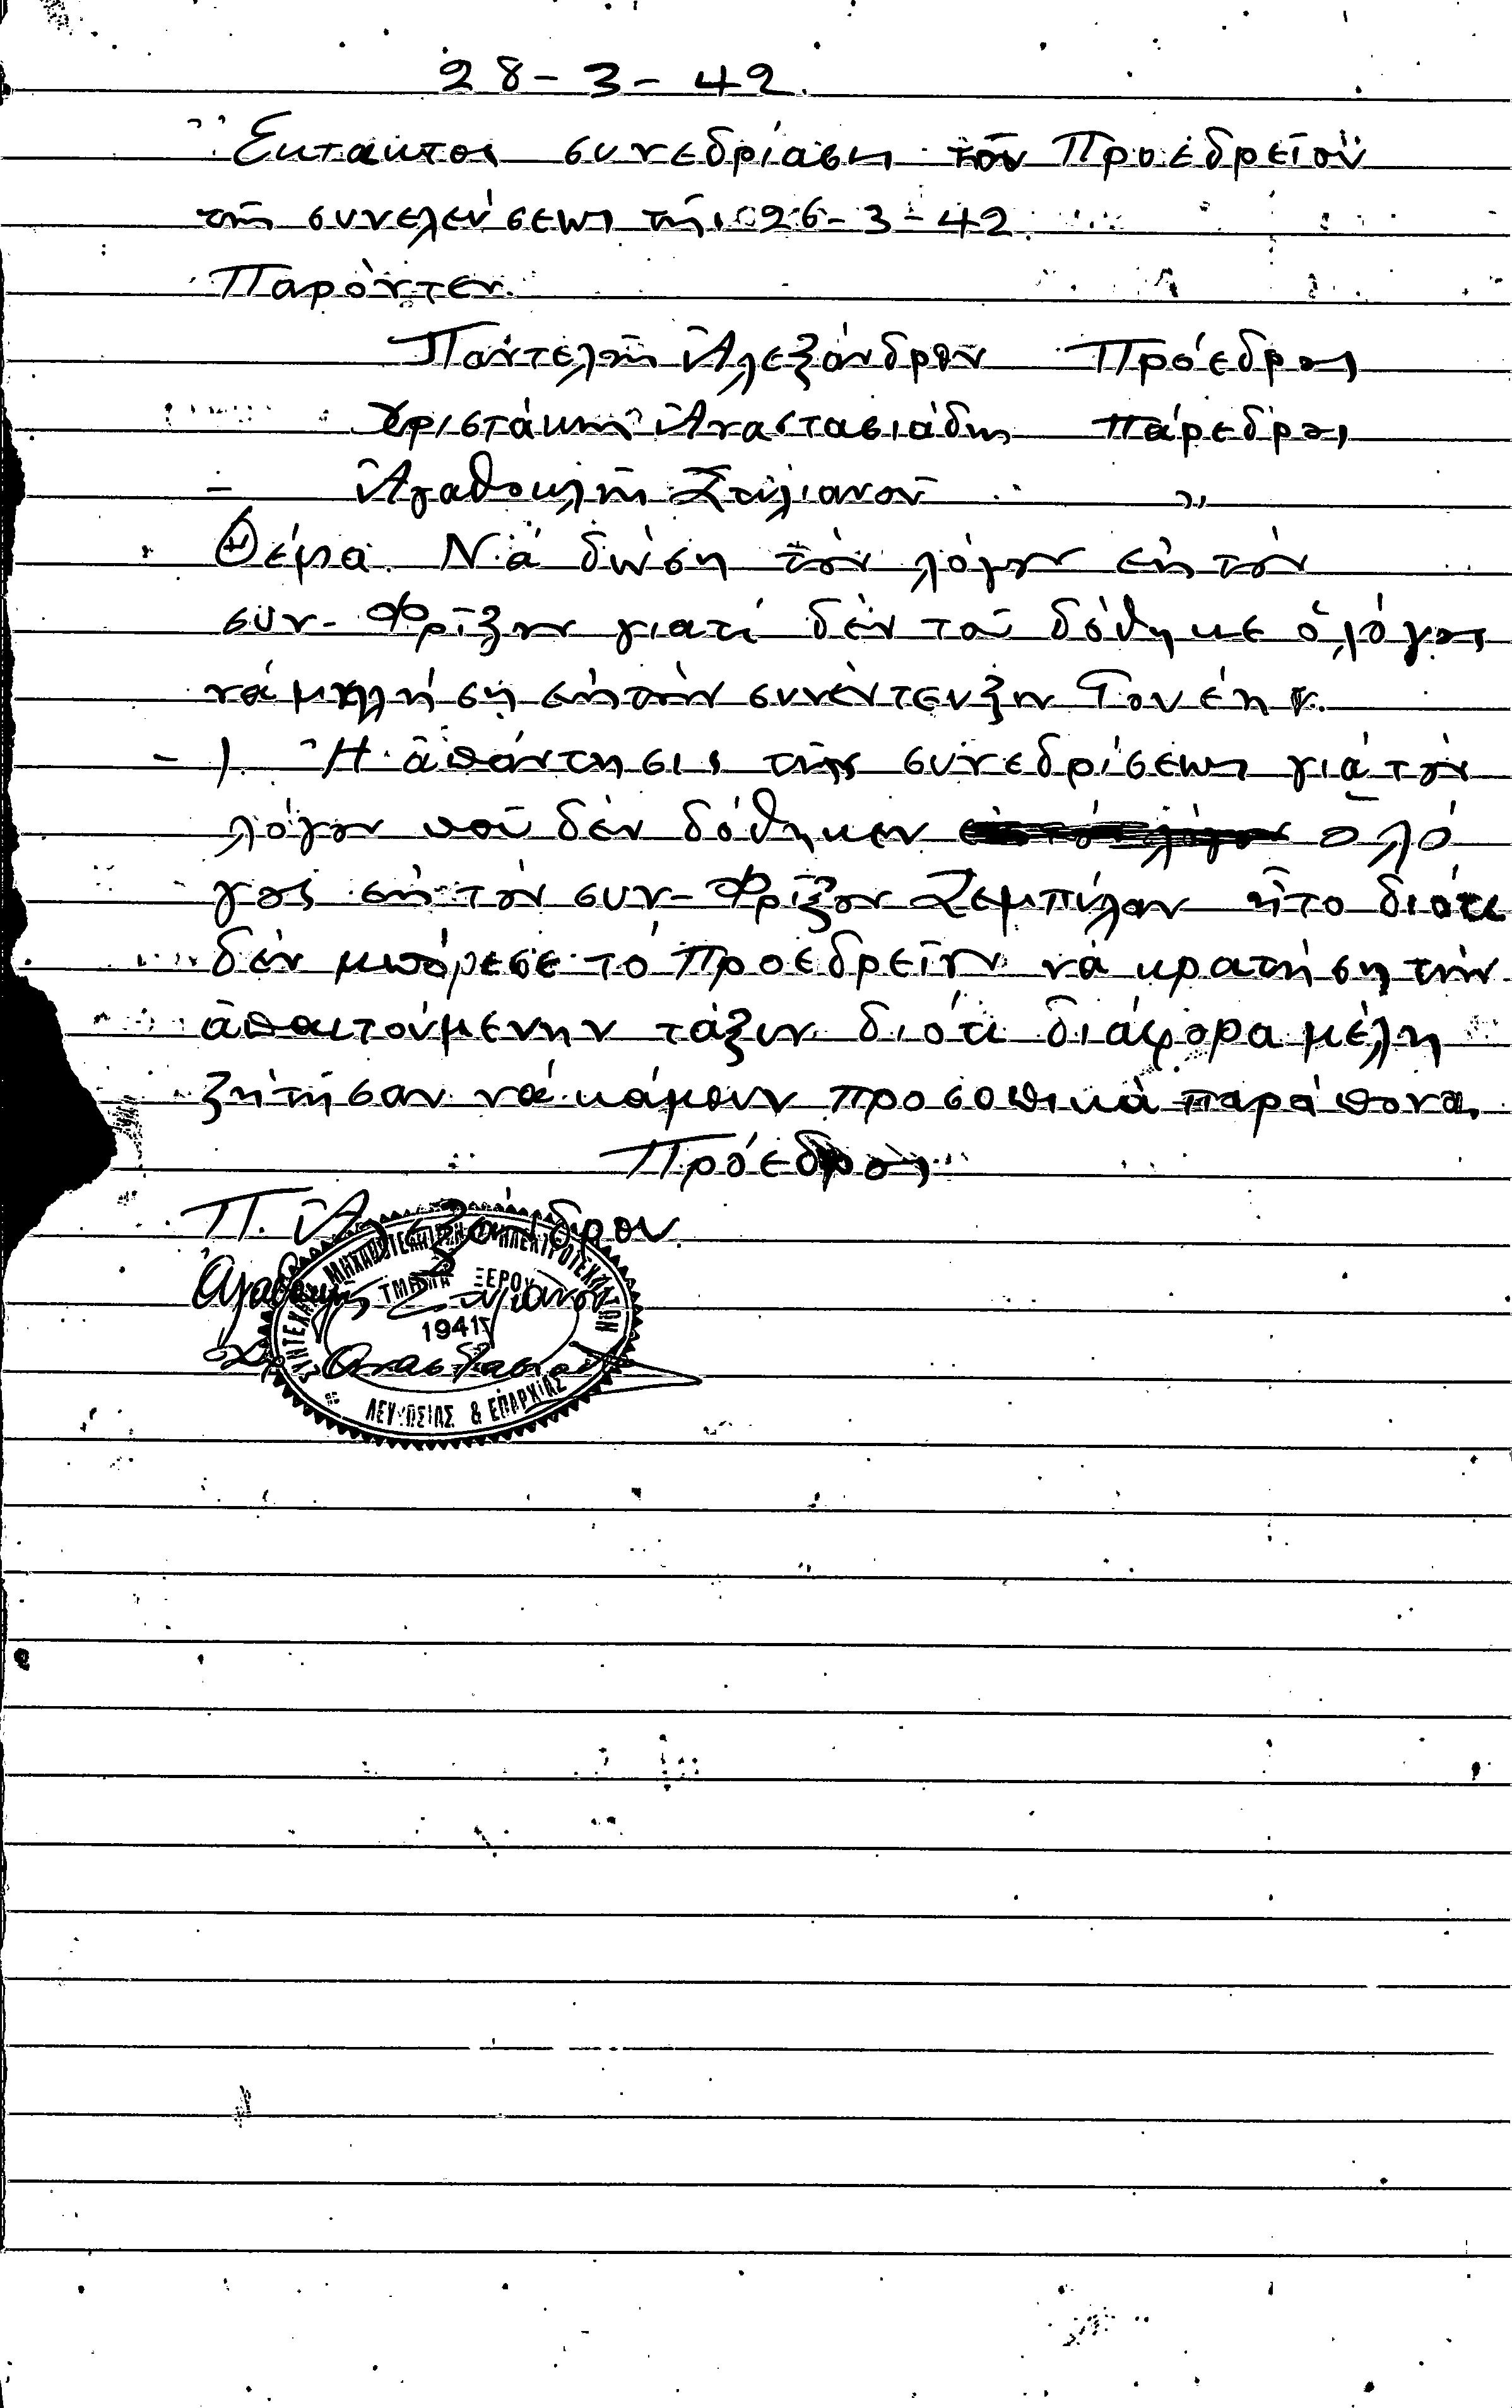 28-3-42.
Ἔκτακτος συνεδρίασις τοῦ Προεδρείου
τῆς συνελεύσεως τῆς 26-3-42
Παρόντες.
Παντελῆς Ἀλεξάνδρου Πρόεδρος
Χριστάκης Ἀναστασιάδης Πάρεδρος
- Ἀγαθοκλῆς Στυλιανοῦ "
Θέμα. Νά δώση τόν λόγον εἰς τόν
συν- Φρῖξον γιατί δέν τοῦ δόθηκε ὁ λόγος
νά μιλήση εἰς τήν συνέντευξιν
- 1. Ἡ ἀπάντησις τῆς συνεδρίσεως γιά τόν
λόγον ποῦ δέν δόθηκεν ὁ λό
γος εἰς τόν συν- Φρῖξον Ζεμπύλαν ἦτο διότι
δέν μπόρεσε τό Προεδρεῖον νά κρατήση τήν
ἀπαιτούμενην τάξιν διότι διάφορα μέλη
ζήτησαν νά κάμουν προσοπικά παράπονα.
Πρόεδρος
Π. Ἀλεξάνδρου
Ἀγαθοκλῆς Στυλιανοῦ
Χρ. Ἀναστασιάδης
ΣΥΝΤΕΧΝΙΑ ΜΗΧΑΝΟΤΕΧΝΙΤΩΝ & ΗΛΕΚΤΡΟΤΕΧΝΙΤΩΝ
ΤΜΗΜΑ ΞΕΡΟΥ
1941
ΛΕΥΚΩΣΙΑΣ & ΕΠΑΡΧΙΑΣ